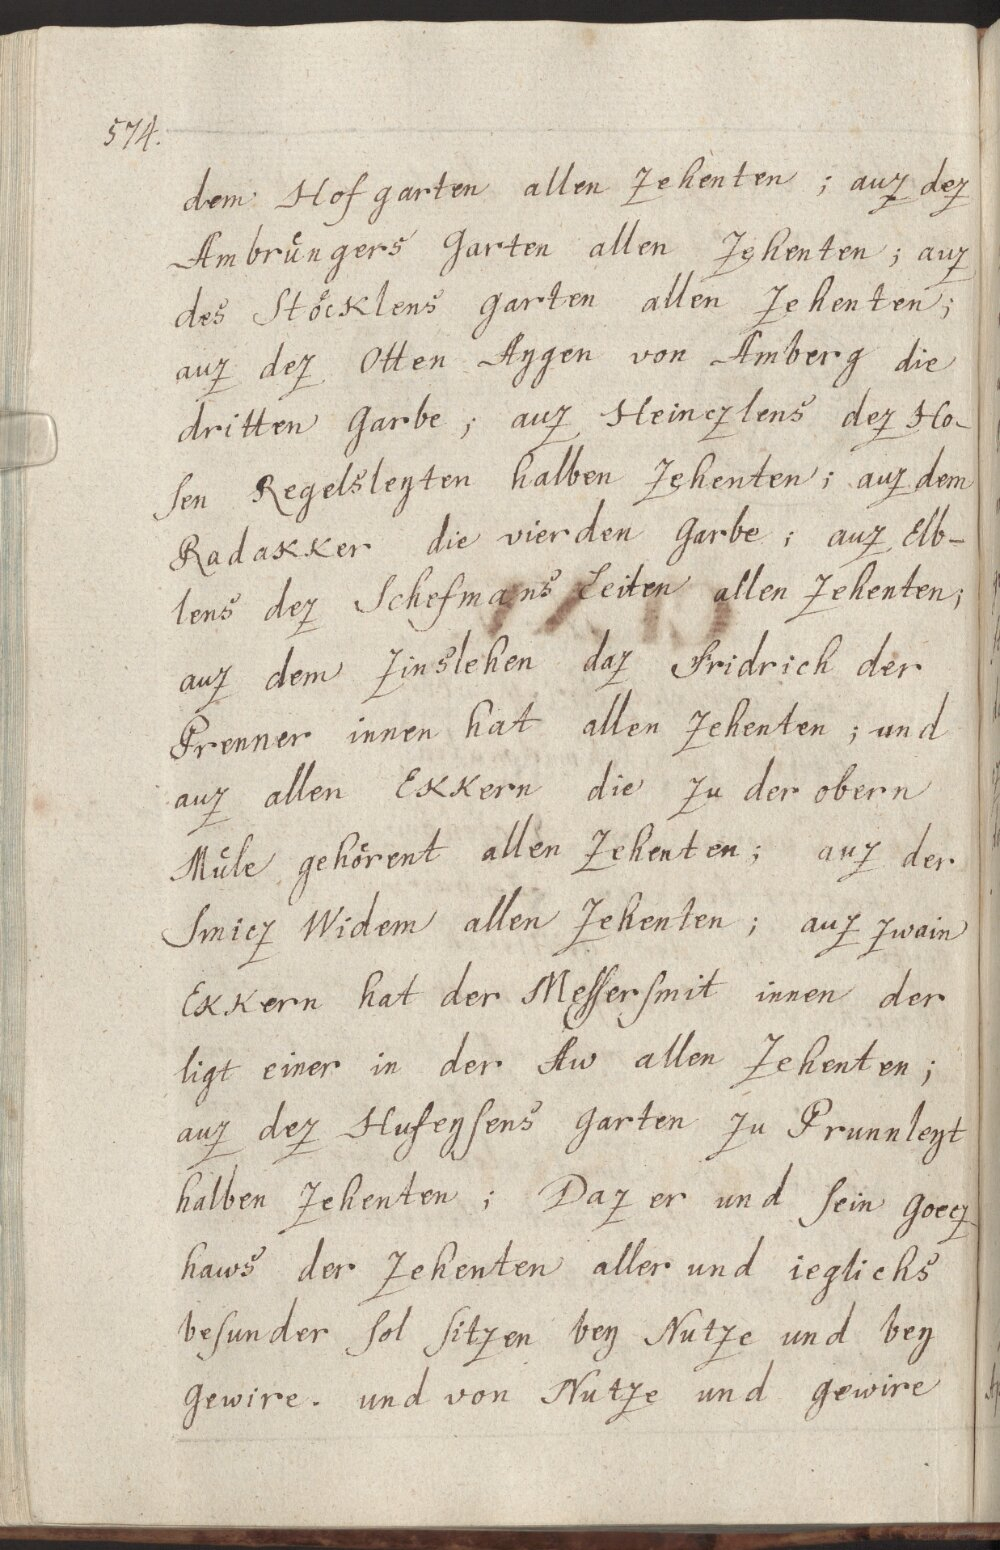 574.
dem Hofgarten allen Zehenten; auz dez
Ambrůngers Garten allen Zehenten; auz
des Stöcklens garten allen Zehenten;
auz dez Otten Aygen von Amberg die
dritten Garbe; auz Heinczlens dez Ho-
sen Regelsleyten halben Zehenten; auz dem
Radakker die vierden Garbe; auz Elb-
lens dez Schefmans Leiten allen Zehenten;
auz dem Zinslehen daz Fridrich der
Prenner innen hat allen Zehenten; und
auz allen Ekkern die zu der obern
Můle gehörent allen Zehenten; auz der
Smicz Widem allen Zehenten; auz zwain
Ekkern hat der Messersmit innen der
ligt einer in der Aw allen Zehenten;
auz dez Hufeysens Garten zu Prunnleyt
halben Zehenten; Daz er und sein Goecz
haws der Zehenten aller und ieglichs
besunder sol sitzen bey Nutze und bey
Gewire. und von Nutze und gewire